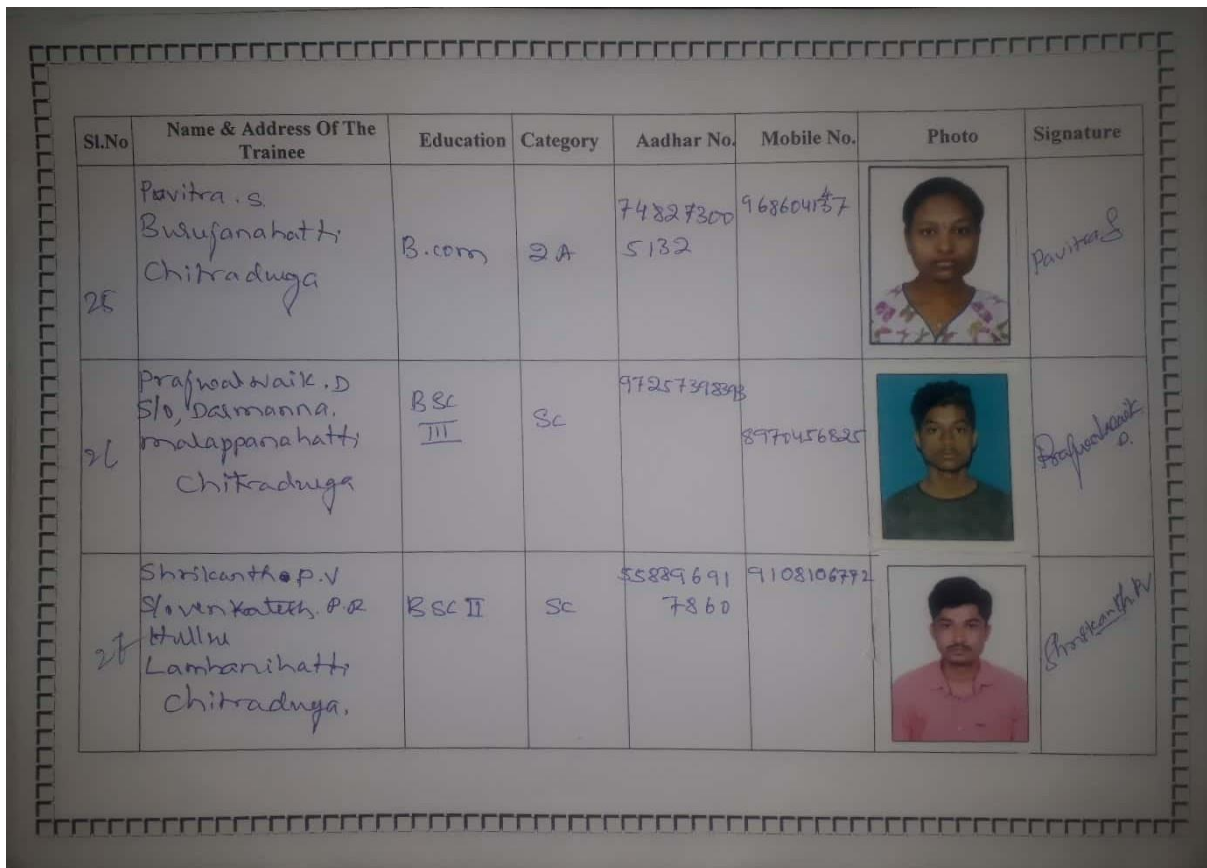 Sl.No
Name & Address Of The
Trainee
Education
Category
Aadhar No.
Mobile No.
Photo
Signature
25
Pavitra . S
Burujanahatti
Chitraduga
B.com
2A
74827300
5132
Pavitra S
26
Prajwal Naik . D
S/o,
malappanahatti
Chitraduga
BSC
III
SC
8970456825
Prajwal naik
D.
27
Shrikanth P.V
S/o Venkatesh. P.R
Lambanihatti
Chitraduga.
BSC II
SC
55889691
7860
9108106792
Shrikanth.P.V